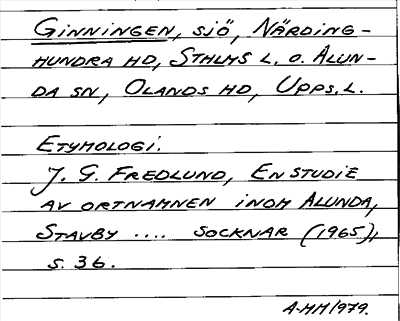 Ginningen, sjö, Närding-
hundra hd, Sthlms l. o. Alun-
da sn, Olands hd, Upps. l.
Etymologi.
J. G. Fredlund, En studie
av ortnamnen inom Alunda,
Stavby .... socknar (1965),
s. 36.
A-MH 1979.